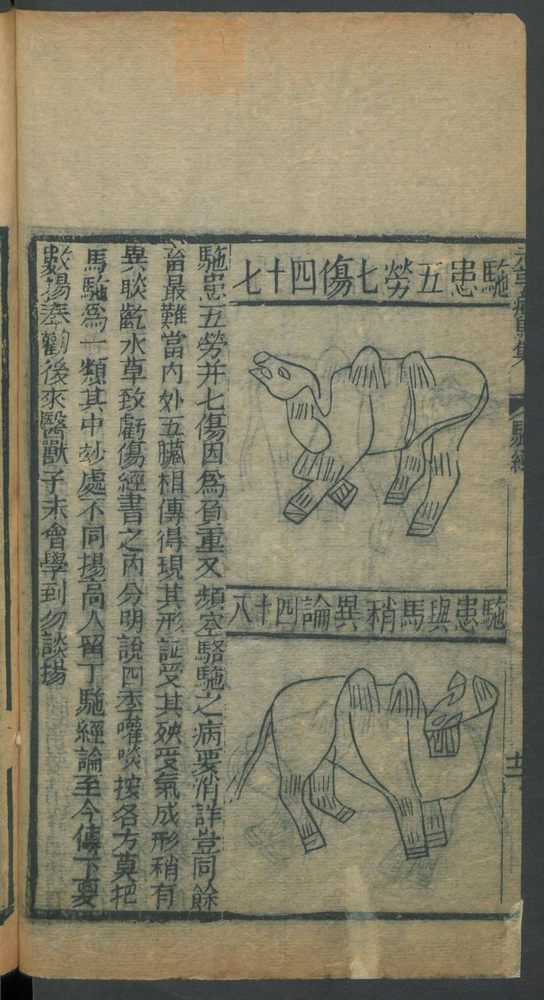 駞患五勞七傷四十七
駞患與馬稍異論四十八
駞患五勞并七傷因爲負重又頻空駱駞之病要消詳豈同餘
畜最難當内外五臟相傳得現其形証受其殃受氣成形稍有
異啖齕水草致虧傷經書之内分明說四季嚾啖按各方莫把
馬駞爲一類其中妙處不同揚高人留丁駞經論至今傳下
數揚奉勸後來醫獸子未會學到勿談揚
駞經
十二